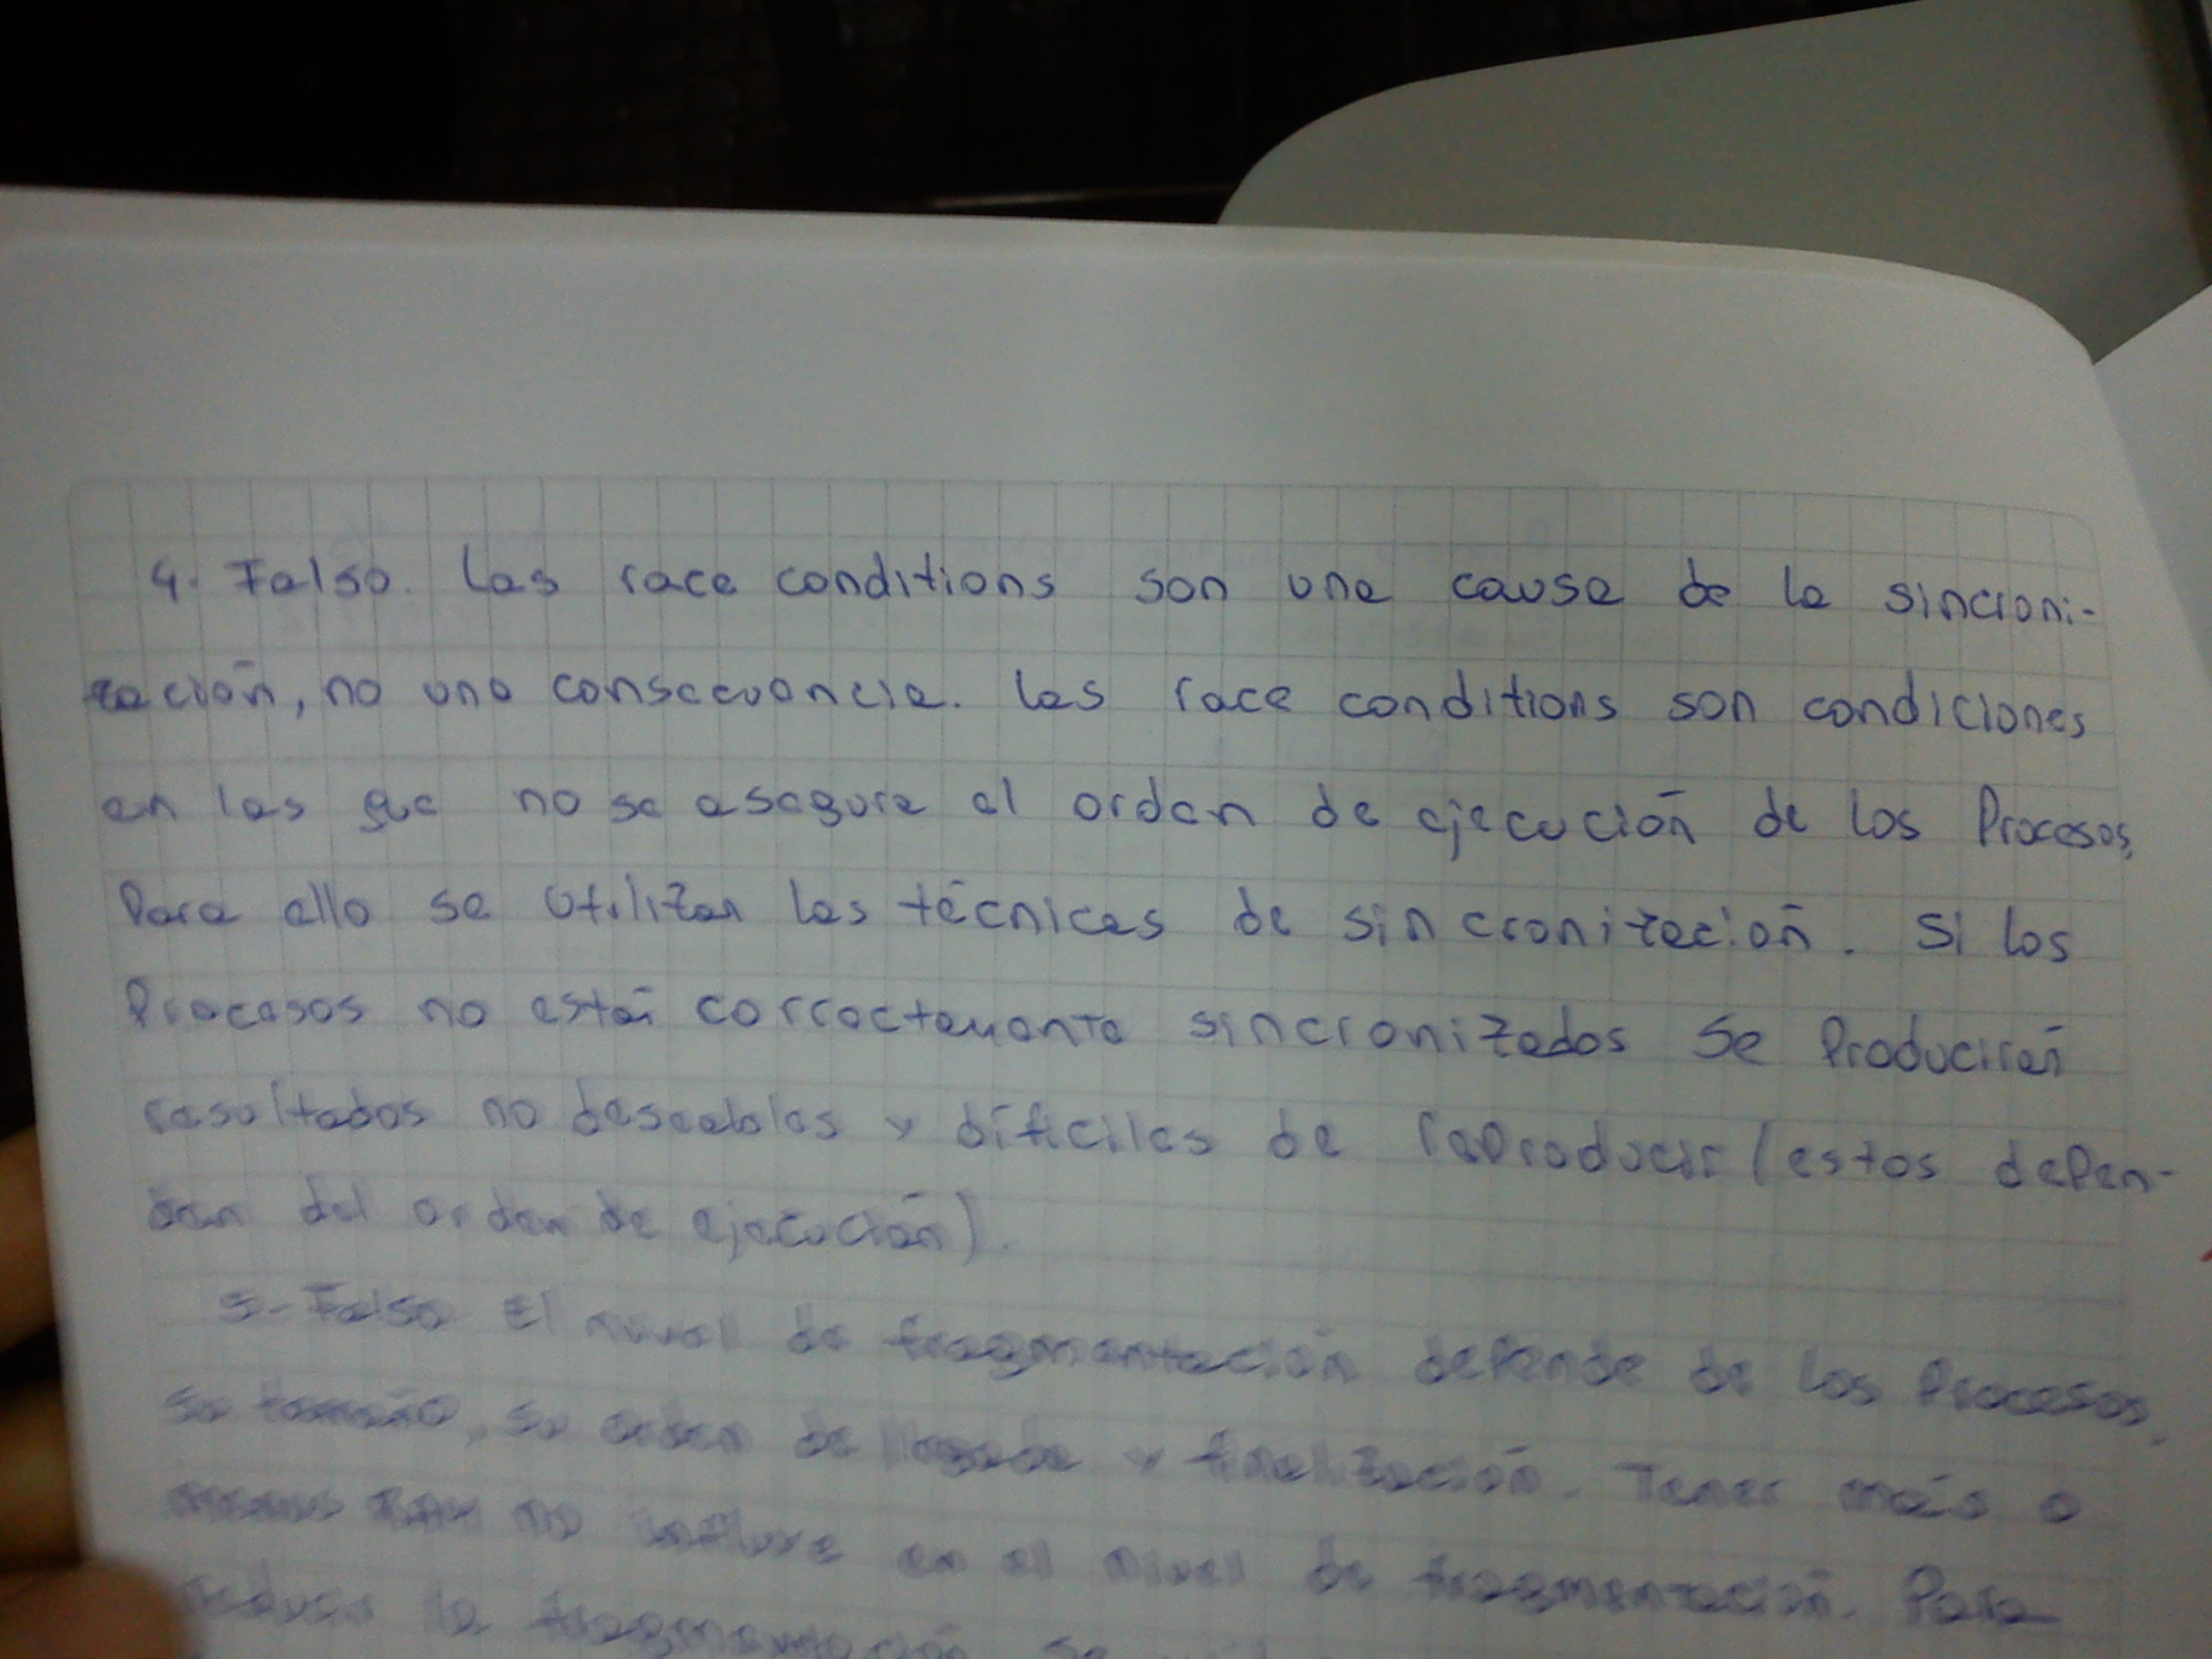 4. Falso. Las race conditions son una causa de la sincroni-
zación, no una consecuencia. Las race conditions son condiciones
en las que no se asegura el orden de ejecución de los Procesos,
Para ello se utilizan las técnicas de sincronización. Si los
Procesos no están correctamente sincronizados se Producirán
resultados no deseables y difíciles de reproducir (estos depen-
den del orden de ejecución).
5- Falso El nivel de fragmentación depende de los Procesos,
su tamaño, su orden de llegada y finalización. Tener más o
menos RAM no influye en el nivel de fragmentación. Para
la fragmentación se